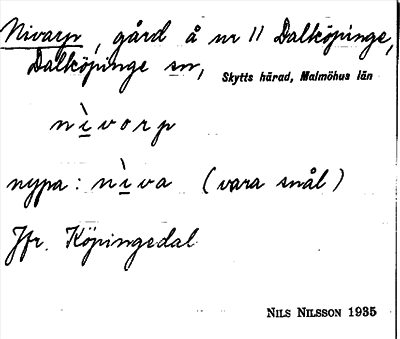 Nivarp, gård å nr 11 Dalköpinge,
Dalköpinge sn, Skytts härad, Malmöhus län
nì̲vorp
nypa: nì̲va (vara snål)
Jfr. Köpingedal
NILS NILSSON 1935